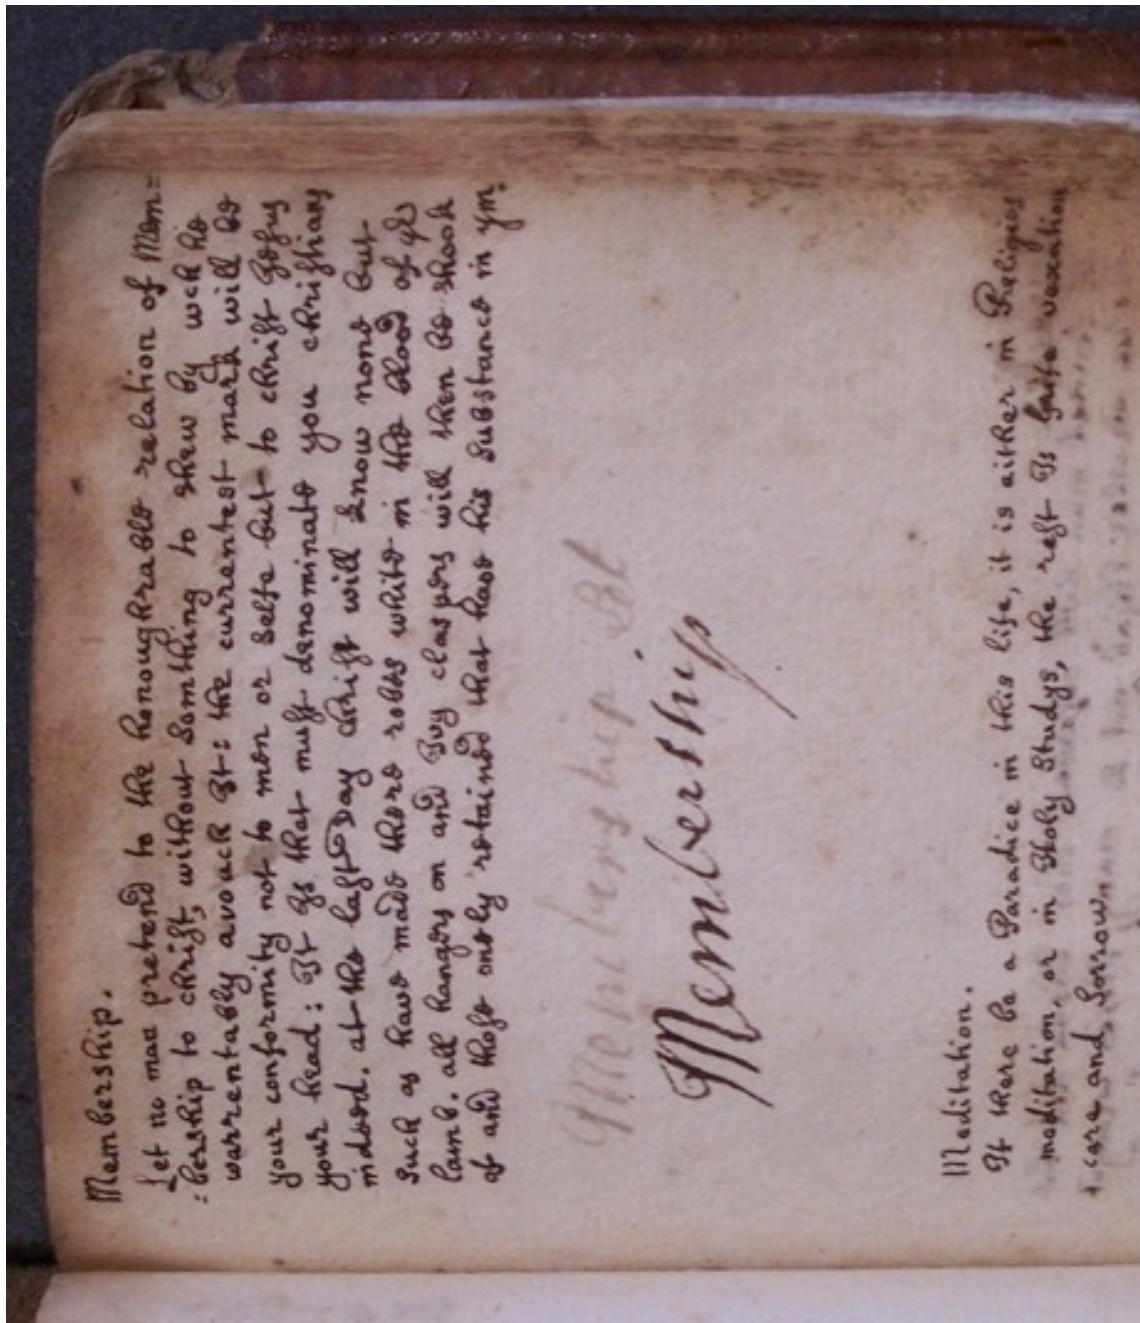 Membership.
Let no mae pretend to the honoughrable relation of Mem=
=bership to christ, without Somthing to shew by wch he
warrentably avouch It: the currentest mark will be
your conformity not to men or selfe but to christ Jesus
your head: It Is that must denominate you christians
indeed. at the last Day christ will know none but
such as have made there robes white in the blood of ye
lamb. all hangers on and Ivy claspers will then be shook
of and those onely retained that have his substance in ym.
Membership
Membership
Meditation.
If there be a Paradice in this life, it is either in Religios
meditation, or in Holy Studys, the rest Is
care and Sorrow.